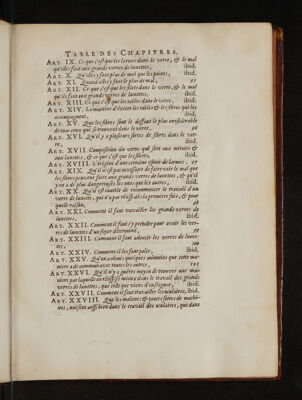 TABLE DES CHAPITRES.
ART. IX. Ce que c'est que les larmes dans le verre, & le mal
qu'elles font aux grands verres de lunettes, ibid.
ART. X. Qu'elles y font plus de mal que les points, ibid.
ART. XI. Quand elles y font le plus de mal, 95
ART. XII. Ce que c'est que les fibres dans le verre, & le mal
qu'ils font aux grands verres de lunettes, ibid.
ART. XIII. Ce que c'est que les tables dans le verre, ibid.
ART. XIV. La maniere d'éviter les tables & les fibres qui les
accompagnent, ibid.
ART. XV. Que les fibres sont le deffaut le plus considerable
de tous ceux qui se trouvent dans le verre, 96
ART. XVI. Qu'il y a plusieurs sortes de fibres dans le verre,
ibid.
ART. XVII. Composition du verre qui sert aux miroirs &
aux lunettes, & ce que c'est que les fibres, ibid.
ART. XVIII. L'origine d'une certaine espece de larmes, 97
ART. XIX. Qu'il n'est pas necessaire de faire voir le mal que
les fibres peuvent faire aux grands verres de lunettes, & qu'il
y en a de plus dangereuses les unes que les autres, ibid.
ART. XX. Qu'il est inutile de recommencer le travail d'un
verre de lunettes, qui n'a pas réussi dés la premiere fois, & pour
quelle raison, 98
ART. XXI. Comment il faut travailler les grands verres de
lunettes, ibid.
ART. XXII. Comment il faut s'y prendre pour avoir les verres
de lunettes d'un foyer determiné, 99
ART. XXIII. Comment il faut adoucir les verres de lunettes,
100
ART. XXIV. Comment il les faut polir, ibid.
ART. XXV. Qu'on a choses quelques minuties que cette maniere
a de commun avec toutes les autres, 101
ART. XXVI. Qu'il n'y a guéres moyen de trouver une maniere
par laquelle on réüssisse mieux dans le travail des grands
verres de lunettes, que celle que je viens d'enseigner, ibid.
ART. XXVII. Comment il faut travailler les oculaires, ibid.
ART. XXVIII. Que les molettes & toutes sortes de machines,
nuisent aussi bien dans le travail des oculaires, que dans